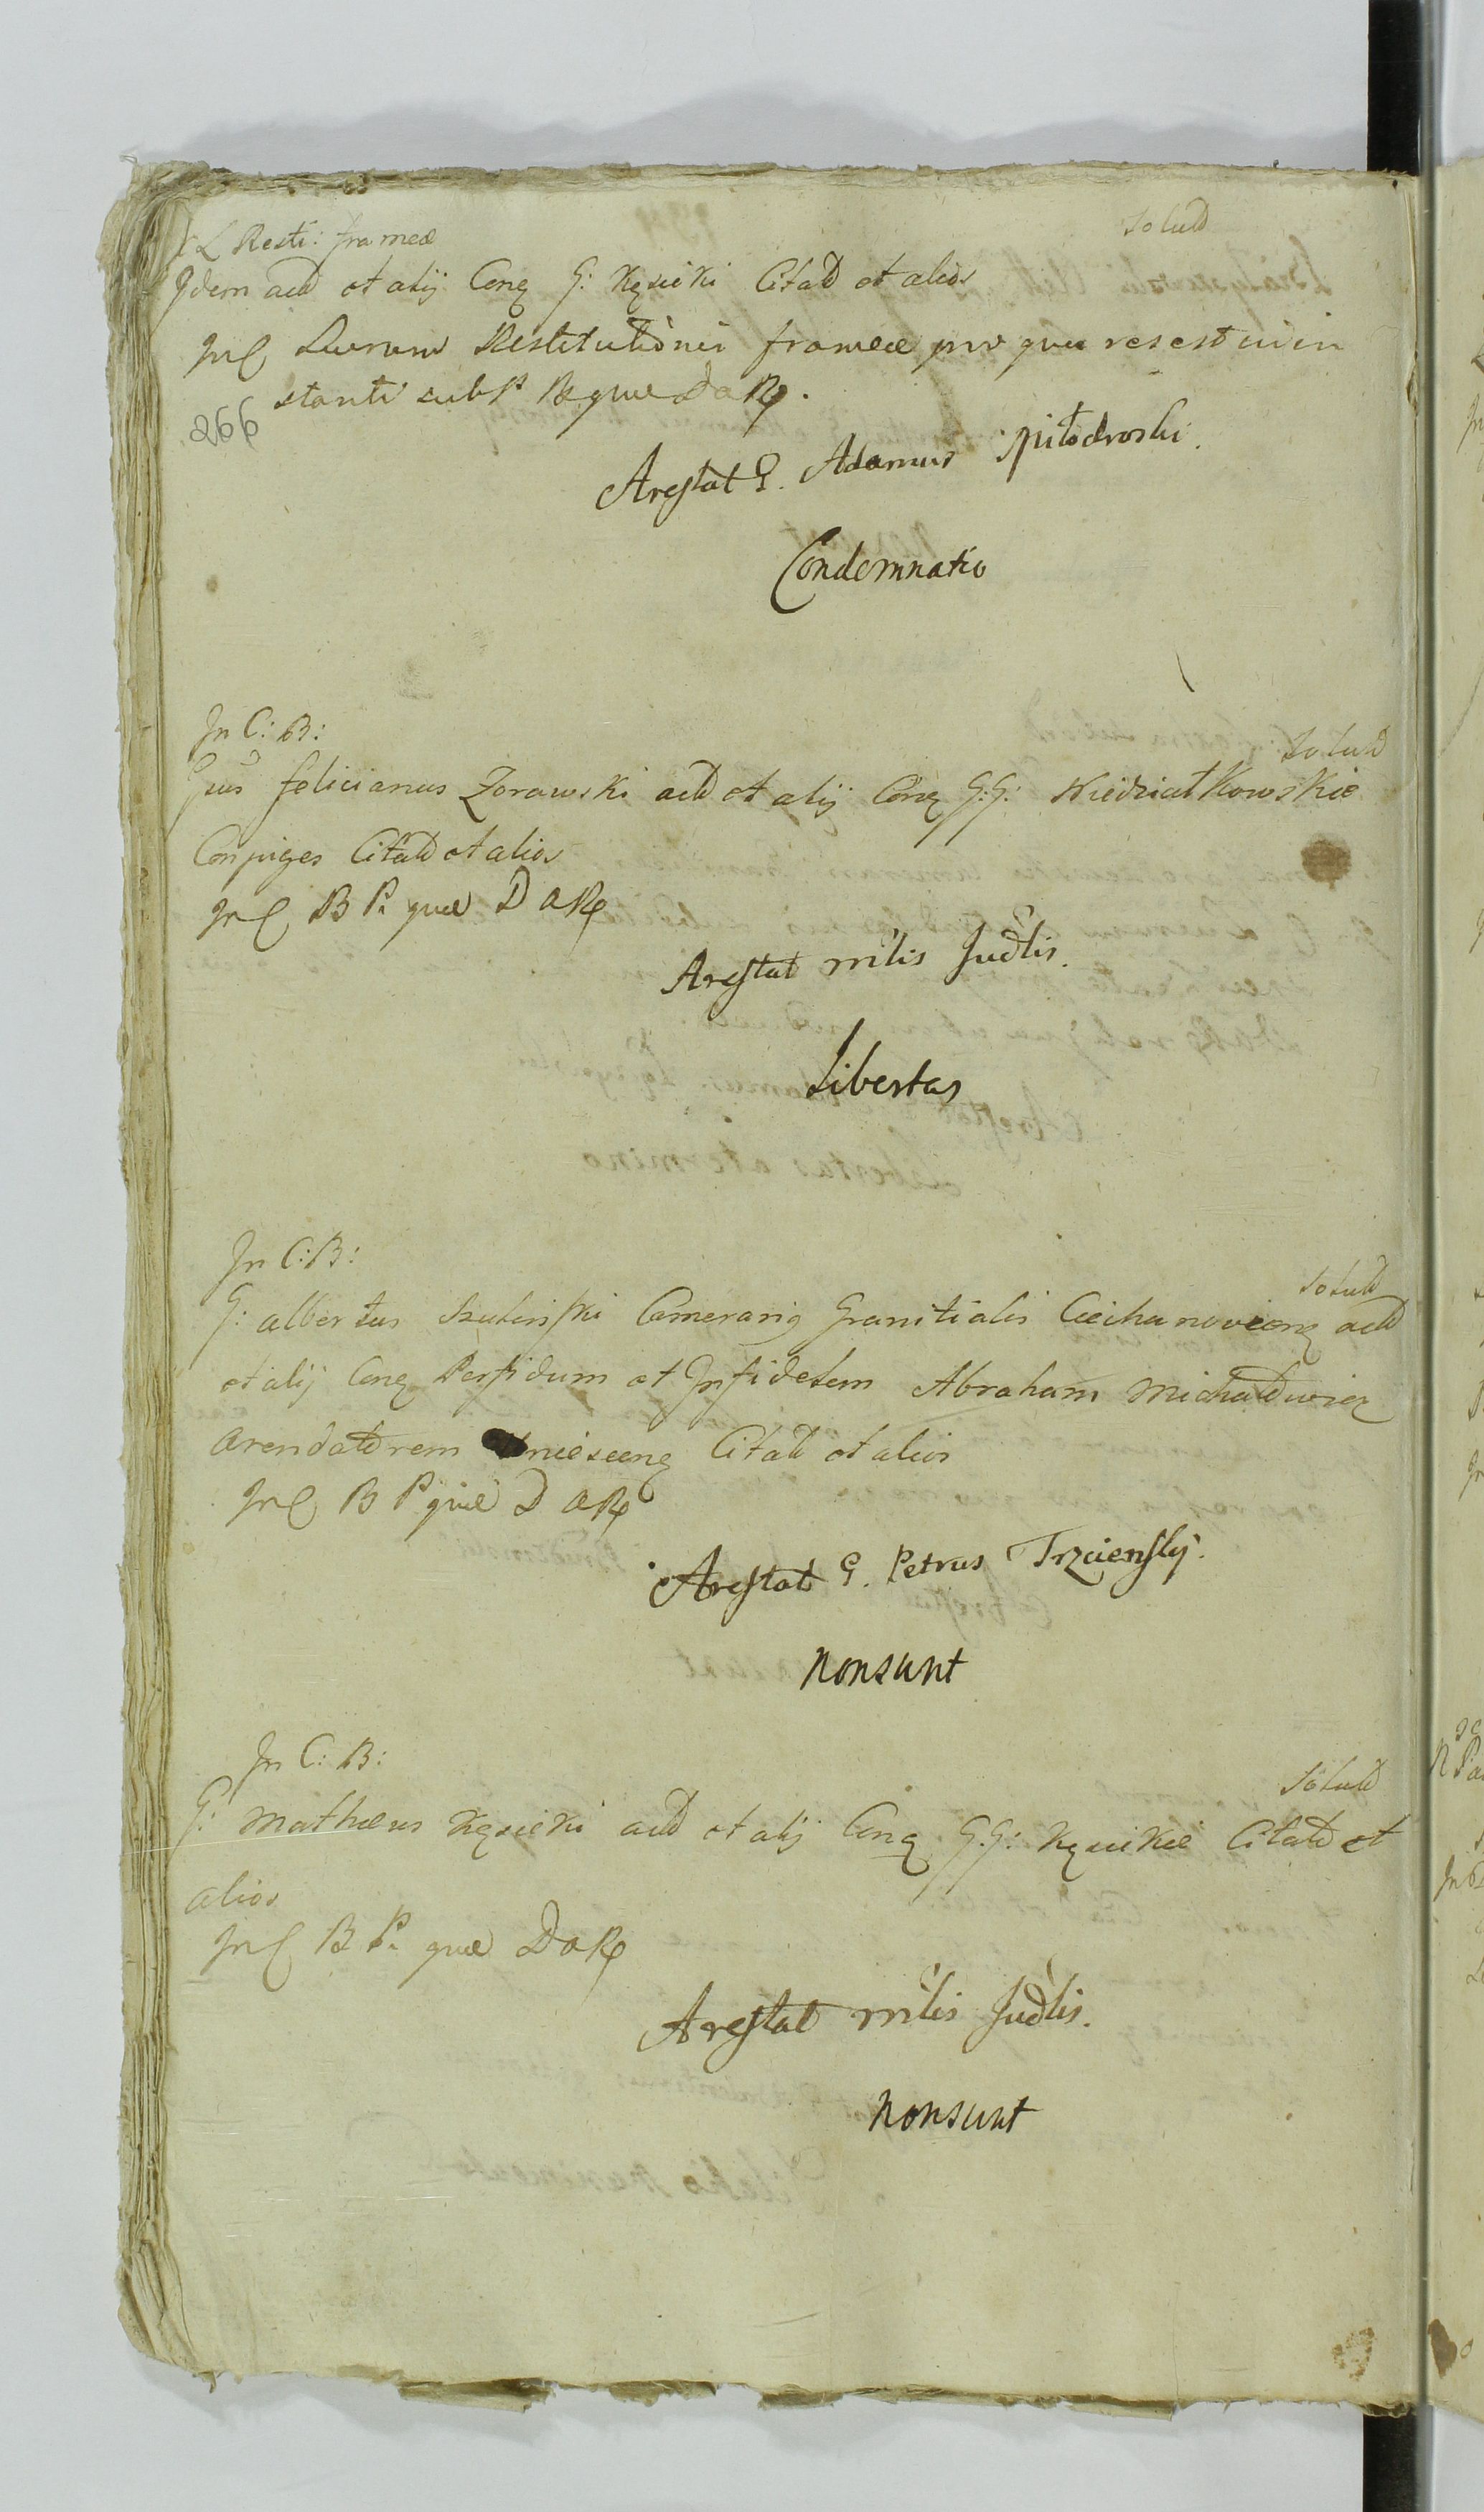 L Resti: frameæ
Solutd
Idem actd et alij Conq G: Kęsicki Citatd et alios
InC Lucrum Restitutionis frameæ pro qua res est inin
stanti sub P Rquæ DaRq.
266
Arestat G. Adamus Miłodroski.
Condemnatio
In C: B:
Solutd
Gnus felicianus Zorawski actd et alij Conq G:G: Niedziałkowskie
Conjuges Citatd et alios
InC B P. quæ D aRq
Arestat mi̇lis Judlis.
Libertas
In C:B:
Solutd
G: albertus Szulinski Camerarig Granitialis Ciechanovienq actd
et alij Conq Perfidum et Infidelem Abraham Michałowicz
Arendatorem Unieceenq Citatd et alios
InC B P quæ D aRq
Arestat G. Petrus Trzcienskij.
Nonsunt
In C: B:
Solutd
G: Mathæus Kęsicki actd et alij Conq G:G: Kęsickie Citatd et
alios
InC B P. quæ DaRq
Arestat mi̇lis Judlis.
Nonsunt